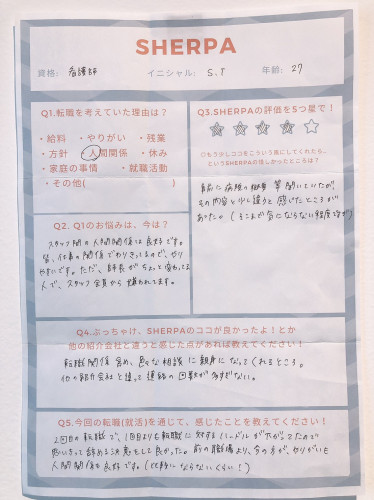 SHERPA
資格: 看護師 イニシャル: S.T 年齢: 27
Q1.転職を考えていた理由は？
・給料 ・やりがい ・残業
・方針 ・人間関係 ・休み
・家庭の事情 ・就職活動
・その他( )
Q2. Q1のお悩みは、今は？
スタッフ間の人間関係は良好です。
皆、仕事の関係でわりきってるので、やり
やすいです。ただ、師長がちょっと変わってる
人で、スタッフ全員から嫌われてます。
Q3.SHERPAの評価を5つ星で！
◎もう少しココをこういう風にしてくれたら、
というSHERPAの惜しかったところは？
事前に病棟の概要等聞いていたが、
その内容と少し違うと感じたところが
あった。(そこまで気にならない程度ですが)
Q4.ぶっちゃけ、SHERPAのココが良かったよ！とか
他の紹介会社と違うと感じた点があれば教えてください！
転職関係含め、色々な相談に親身になってくれるところ。
他の紹介会社と違って連絡の回数が多すぎない。
Q5.今回の転職(就活)を通じて、感じたことを教えてください！
2回目の転職で、1回目よりも転職に対するハードルが下がってたので
思いきって辞める決意をして良かった。前の職場より、今の方が、やりがいも
人間関係も良好です。(比較にならないくらい！)